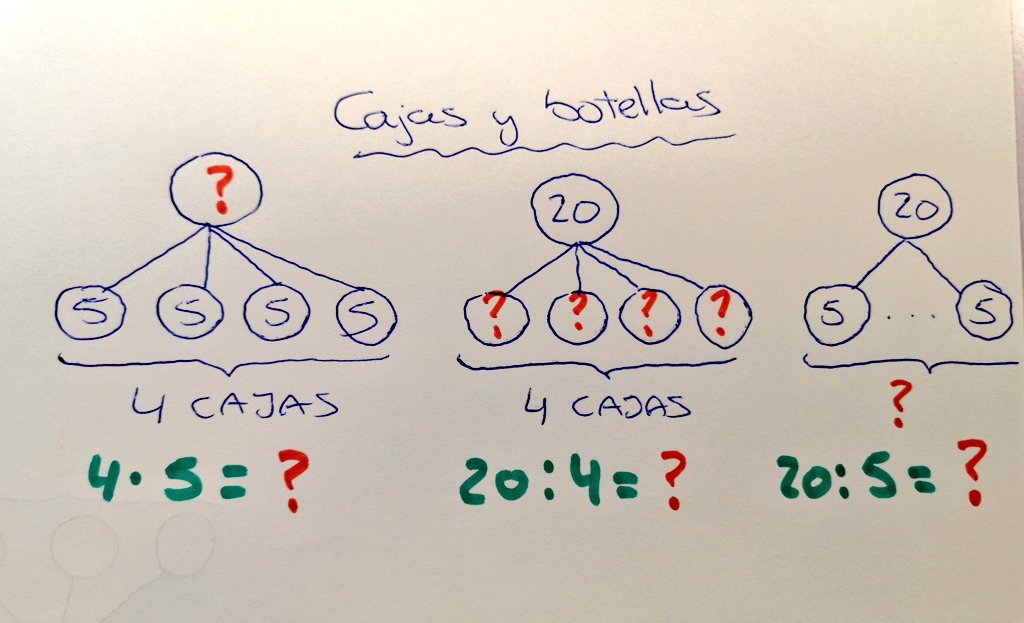 Cajas y botellas
? 20 20
5 5 5 5 ? ? ? ? 5 .... 5
4 CAJAS 4 CAJAS ?
4 · 5 = ? 20 : 4 = ? 20 : 5 = ?